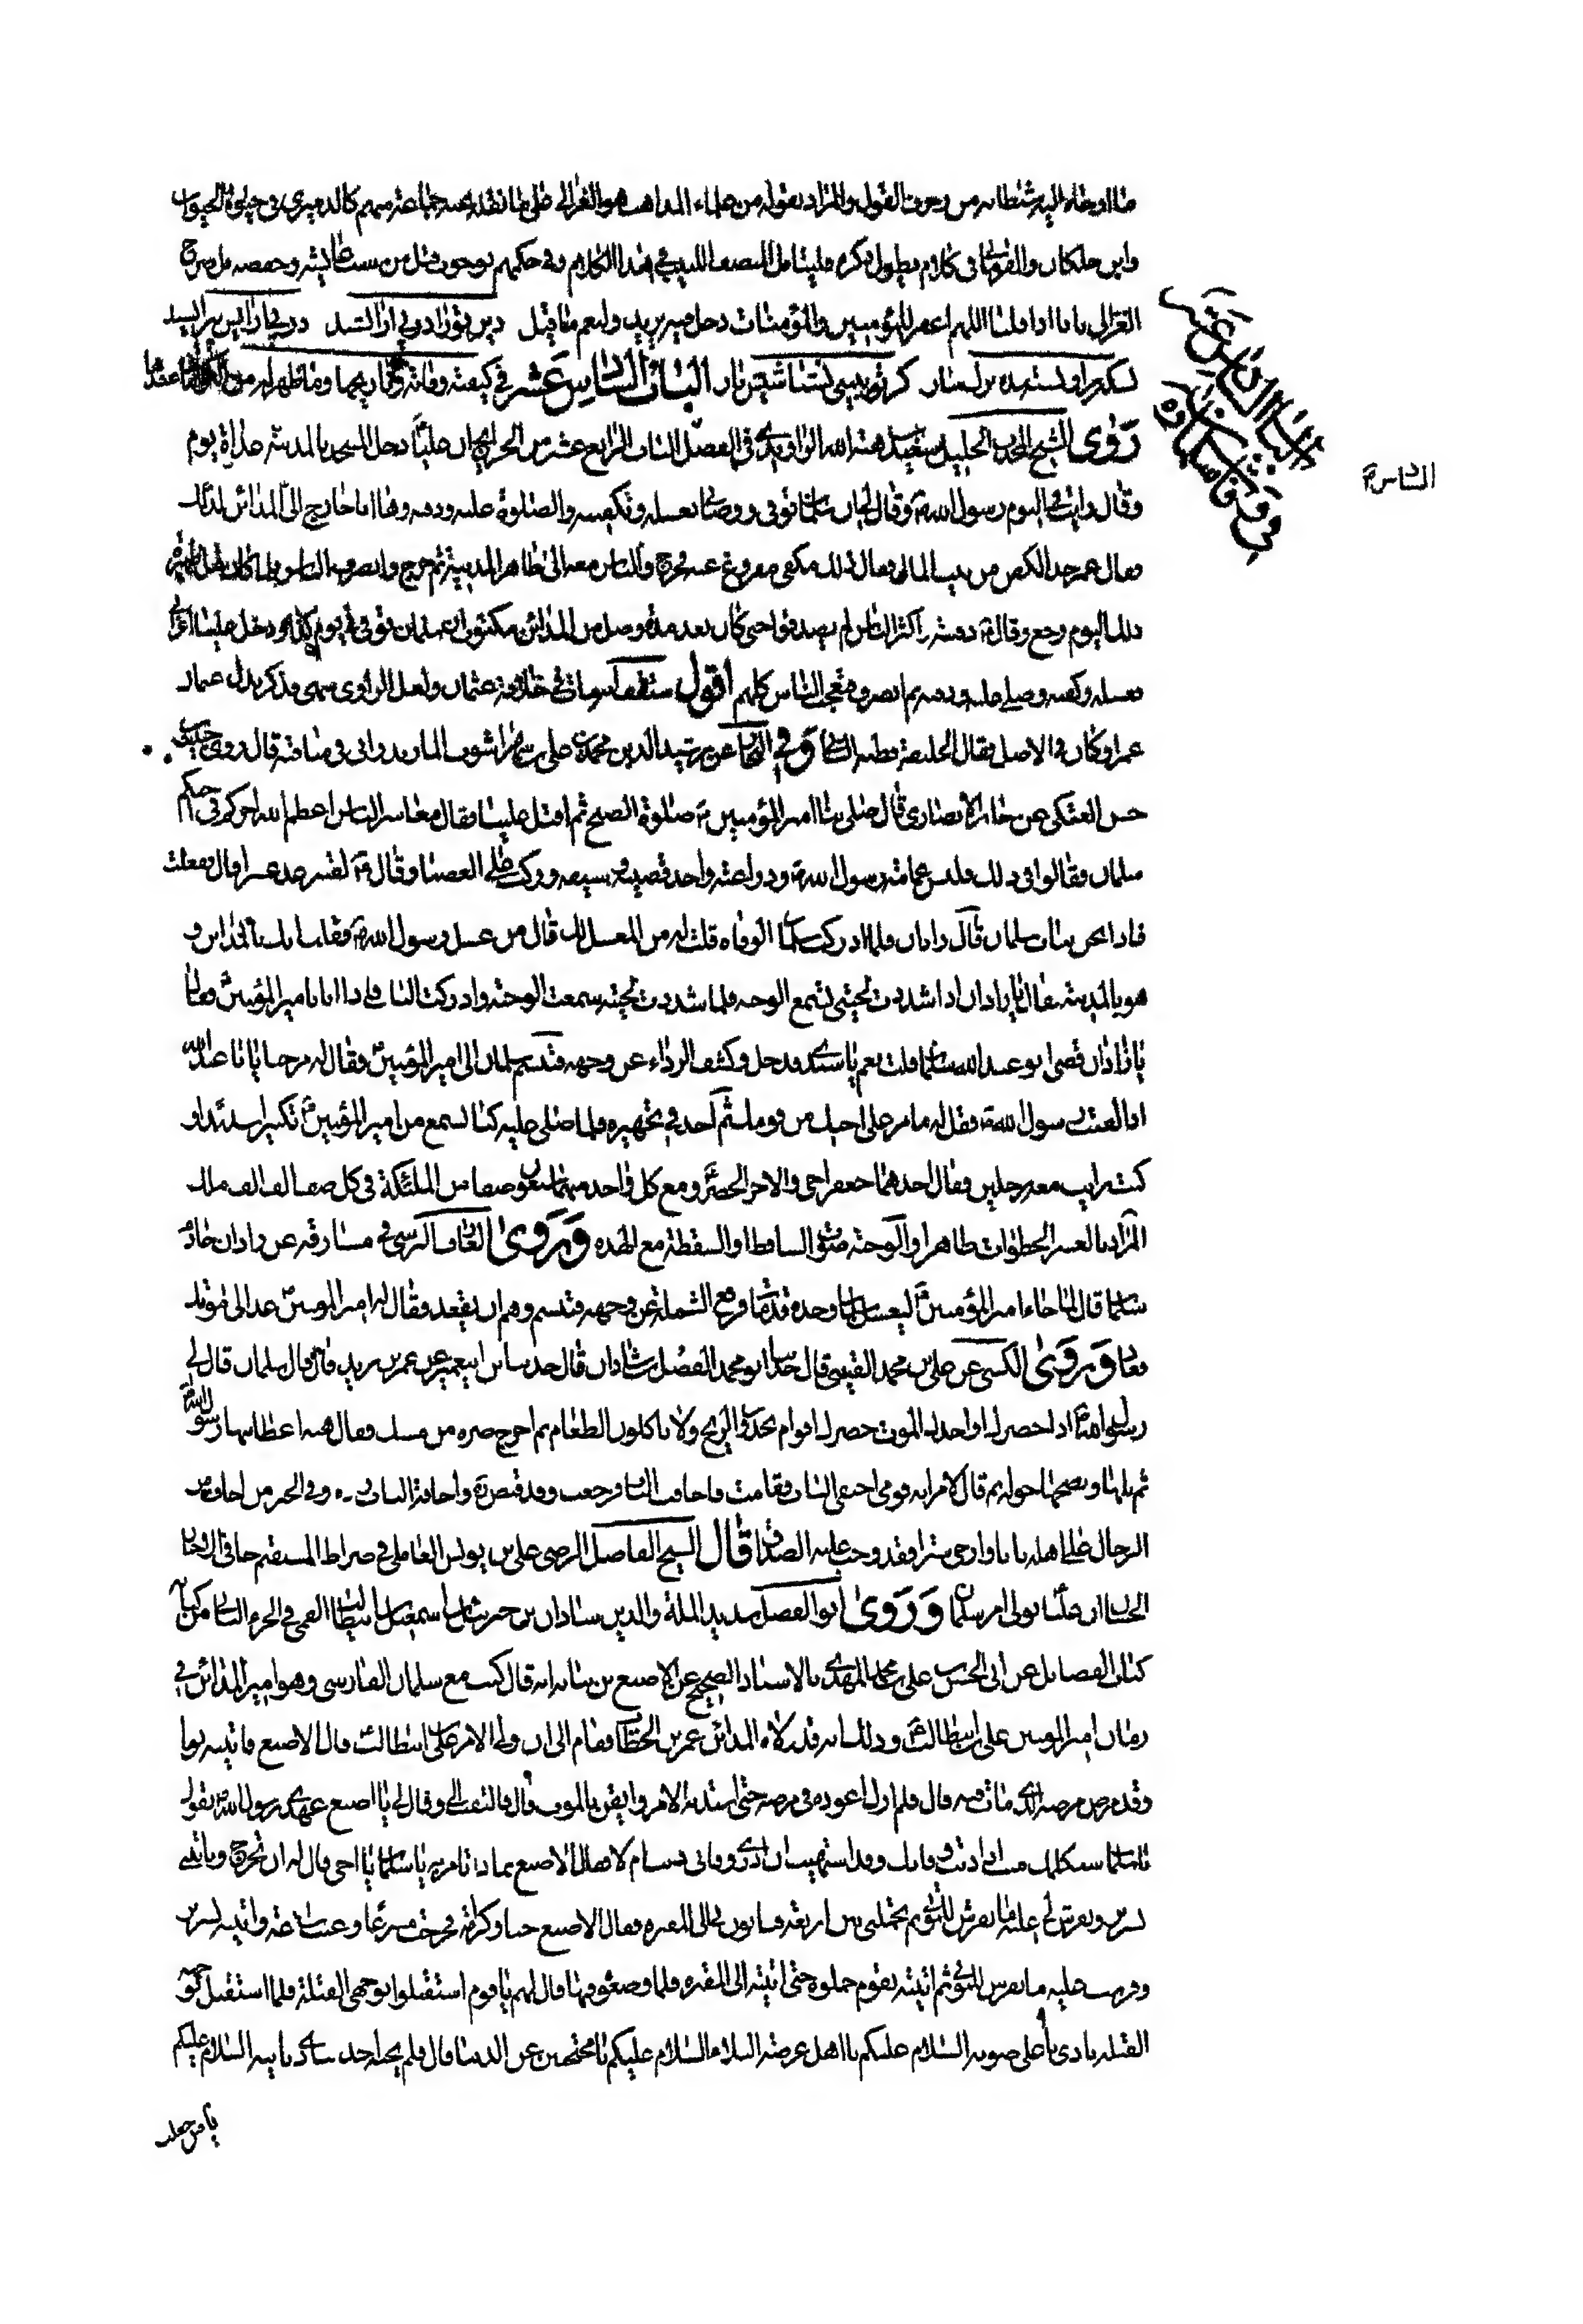 ما اوحاه اليه شيطانه من زخرف القول والمراد بقوله من علماء المذاهب هو الغزالي على ما نقله عنه جماعة منهم كالدميري في حيوة الحيوان
وابن خلكان والقرماني في كلام يطول ذكره فليتامل المنصف اللبيب في هذا الكلام وفي حكمهم بوجوب قتل من سب عايشه وحفصه مل صرح
الغزالي بانا اذا قلنا اللهم اغفر للمؤمنين والمؤمنات دخل فيه يزيد ولنعم ما قيل
الباب السادس عشر في كيفية وفاته وما ظهر له من
روى الشيخ الجليل سعيد هبة الله الراوندي في الفصل الباب الرابع عشر من الخرايج ان عليا دخل المسجد بالمدينة غداة يوم
وقال رايت في اليوم رسول الله وقال لي ان سلمان توفي ووصاني بغسله وتكفينه والصلوة عليه ودفنه وها انا خارج الى المدائن لذلك
فقال عمر خذ الكفن من بيت المال فقال ذلك مكفى مفروغ عنه فخرج والناس معه الى ظاهر المدينة ثم خرج وانصرف الناس فلما كان قبل ظهيرة
ذلك اليوم رجع وقال دفنته واكثر الناس لم يصدقوا حتى كان بعد مدة وصل من المدائن مكتوب ان سلمان توفي في يوم كذا ودخل علينا اعرابي
فغسله وكفنه وصلى عليه ودفنه ثم انصرف فتعجب الناس كلهم اقول ستقف انه مات في خلافة عثمان ولعل الراوي سهى فذكر بدل عثمان
عمر او كان في الاصل فقال الخليفة فظنه الثاني وفي البحار عن رشيد الدين محمد بن علي بن شهراشوب المازندراني في مناقبه قال روى حبيب
حسن العتكي عن جابر الانصاري قال صلى بنا امير المؤمنين صلوة الصبح ثم اقبل علينا فقال معاشر الناس اعظم الله اجركم في اخيكم
سلمان فقالوا في ذلك فلبس عمامة رسول الله ودراعته واخذ قضيبه وسيفه وركب على العضبا وقال لقنبر عد عشرا قال ففعلت
فاذا نحن بباب سلمان قال زاذان فلما ادركت سلمان الوفاة قلت له من المغسل لك قال من غسل رسول الله فقلت انك بالمداين و
هو بالمدينة فقال يا زاذان اذا شددت لحيتي تسمع الوجبه فلما شددت لحيته سمعت الوجبة وادركت الباب فاذا انا بامير المؤمنين فقال
يا زاذان قضى ابو عبد الله سلمان قلت نعم يا سيدي فدخل وكشف الرداء عن وجهه فتبسم سلمان الى امير المؤمنين فقال له مرحبا يا ابا عبد الله
اذا لقيت رسول الله فقل له ما مر على اخيك من قومك ثم اخذ في تجهيزه فلما صلى عليه كنا نسمع من امير المؤمنين تكبيرا شديدا و
كنت رايت معه رجلين فقال احدهما جعفر اخي والاخر الخضر ومع كل واحد منهما سبعون صفا من الملئكة في كل صف الف الف ملك
المراد بالعشر الخطوات ظاهرا والوجبة صوت الساقط او السقطة مع الهده وروى الحافظ البرسي في مشارقه عن زاذان خادم
سلمان قال لما جاء امير المؤمنين ليغسل سلمان وجده قد مات فرفع الشملة عن وجهه فتبسم وهم ان يقعد فقال له امير المؤمنين عد الى موتك
فعاد وروى الكشي عن علي بن محمد القتيبي قال حدثنا ابو محمد الفضل بن شاذان قال حدثنا ابن ابي عمير عن عمر بن يزيد قال قال سلمان قال لي
رسول الله اذا حضرك او اخذك الموت حضرك اقوام يجدون الريح ولا ياكلون الطعام ثم اخرج صرة من مسك فقال هبة اعطانيها رسول الله
ثم بلها ونضحها حوله ثم قال لامراته قومي اجيفي الباب فقامت فاجافت الباب فرجعت وقد قبض واجافة الباب رده وفي الخبر من اجاف من
الرجال على اهله بابا وارخى سترا فقد وجب عليه الصداق قال الشيخ الفاضل الرضي علي بن يونس العاملي في صراط المستقيم
ان عليا تولى امر سلمان وروى ابو الفضل سديد الملة والدين شاذان بن جبرئيل بن اسمعيل بن ابيطالب القمي في الجزء الثاني من كتاب
كتاب الفضايل عن ابي الحسن علي بن محمد المهدي بالاسناد الصحيح عن الاصبغ بن نباته انه قال كنت مع سلمان الفارسي وهو امير المدائن في
زمان امير المؤمنين علي بن ابيطالب وذلك انه قد ولاه المدائن عمر بن الخطاب فقام الى ان ولي الامر علي بن ابيطالب قال الاصبغ فاتيته يوما
وقد مرض مرضه الذي مات فيه قال فلم ازل اعوده في مرضه حتى اشتد به الامر وايقن بالموت قال فالتفت الي وقال لي يا اصبغ عهدي برسول الله يقول
يا سلمان سيكلمك ميت اذا دنت وفاتك وقد اشتهيت ان ادري وفاتي دنت ام لا فقال الاصبغ بماذا تامر به يا سلمان يا اخي قال له ان تخرج وتاتيني
بسرير وتفرش لي عليه ما يفرش للموتى ثم تحملني بين اربعة فتاتون بي الى المقبره فقال الاصبغ حبا وكرامة فخرجت مسرعا وغبت ساعة واتيته بسرير
وفرشت عليه ما يفرش للموتى ثم اتيته بقوم حملوه حتى اتيته الى المقبره فلما وضعوه فيها قال لهم يا قوم استقبلوا بوجهي القبلة فلما استقبل بوجهه
القبله نادى باعلى صوته السلام عليكم يا اهل عرصة البلاء السلام عليكم يا محتجبين عن الدنيا قال فلم يجبه احد فنادى ثانية السلام عليكم
يا من جعلت